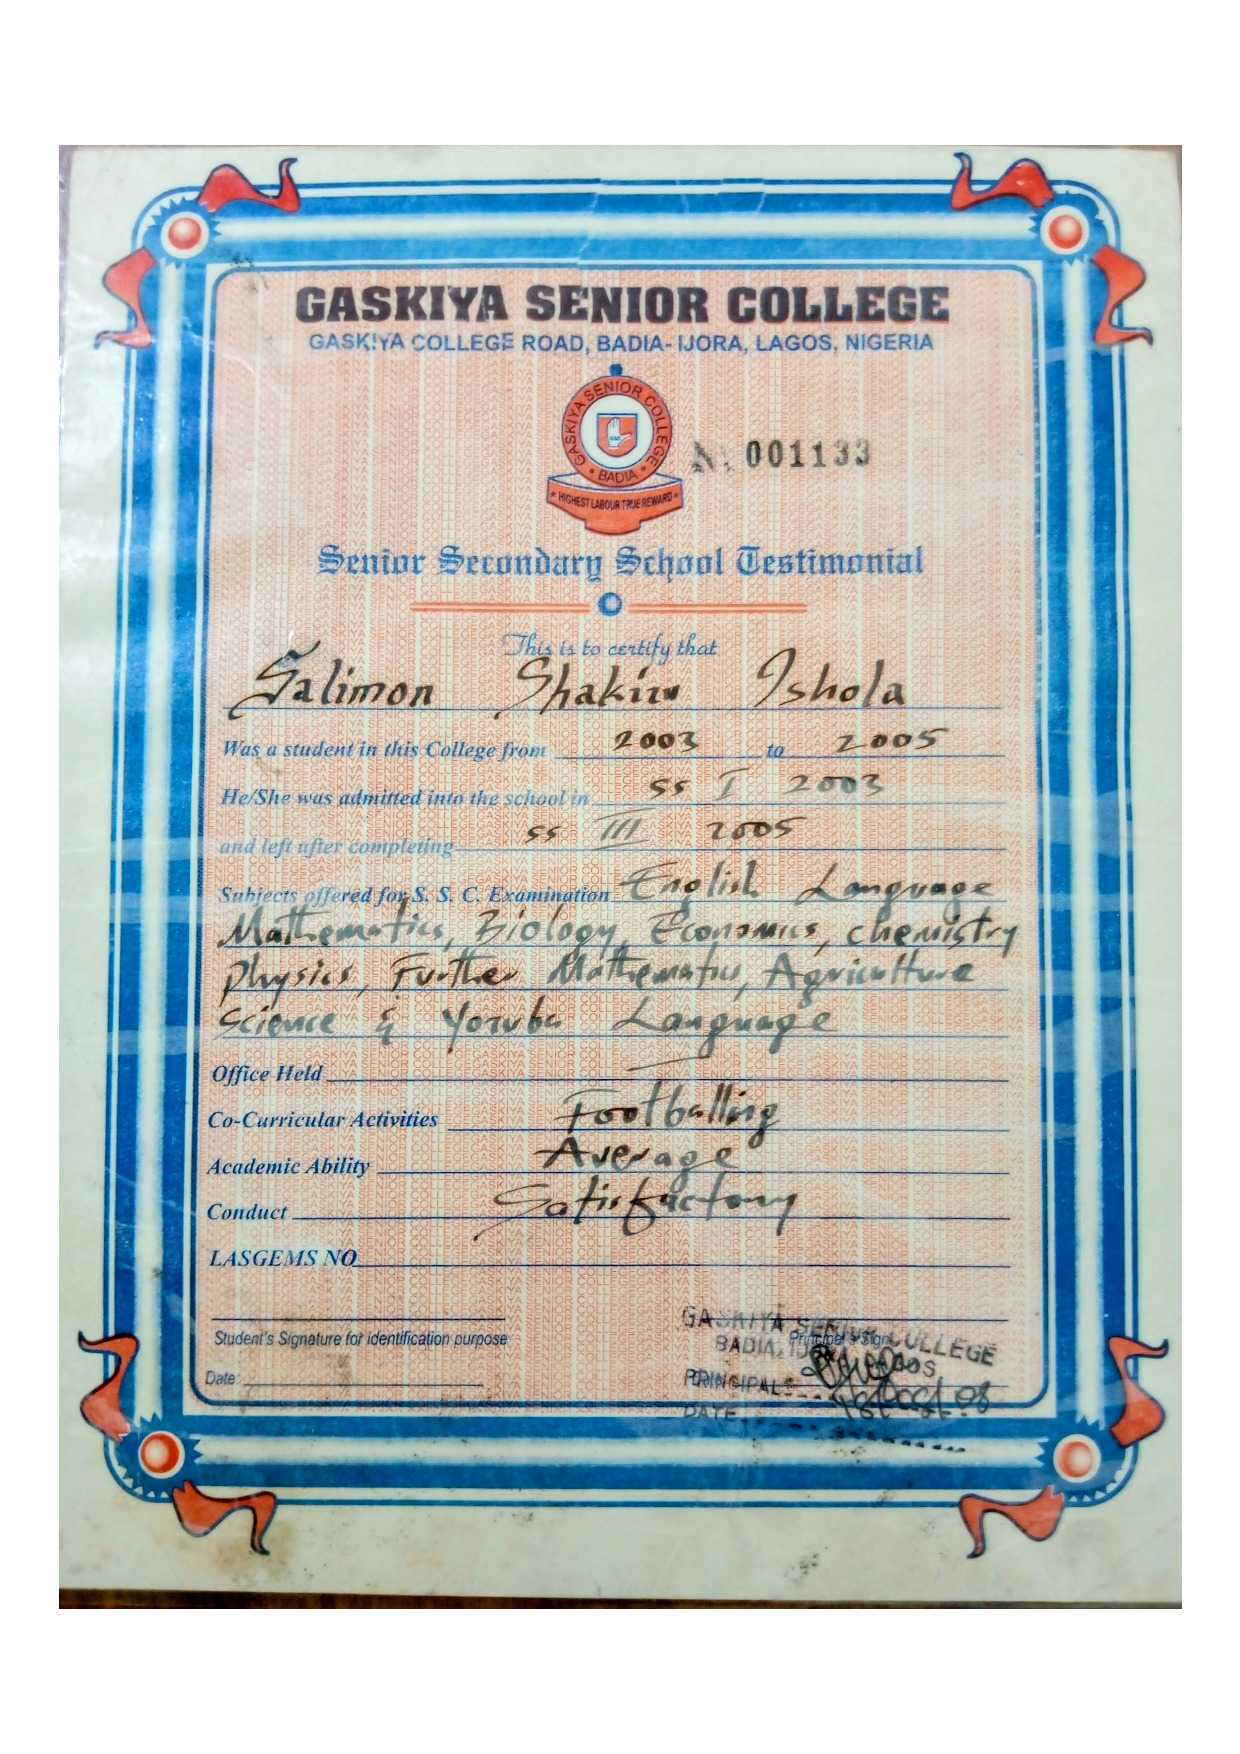 GASKIYA SENIOR COLLEGE
GASKIYA COLLEGE ROAD, BADIA- IJORA, LAGOS, NIGERIA
GASKIYA SENIOR COLLEGE
GSC
• BADIA •
* HIGHEST LABOUR TRUE REWARD *
No. 001133
Senior Secondary School Testimonial
This is to certify that
Salimon Shakiru Ishola
Was a student in this College from 2003 to 2005
He/She was admitted into the school in SS I 2003
and left after completing SS III 2005
Subjects offered for S. S. C. Examination English Language
Mathematics, Biology, Economics, chemistry
Physics, Further Mathematics, Agriculture
Science & Yoruba Language
Office Held —
Co-Curricular Activities Footballing
Academic Ability Average
Conduct Satisfactory
LASGEMS NO
Student's Signature for identification purpose
Principal's Sign
Date:
GASKIYA SENIOR COLLEGE
BADIA, IJORA, LAGOS
PRINCIPAL
DATE